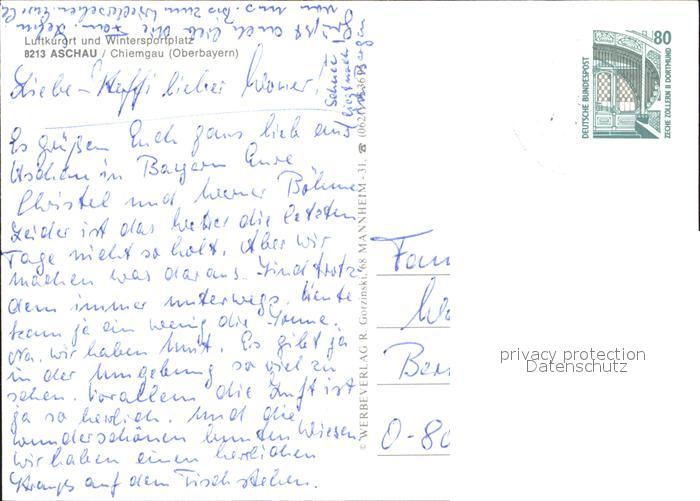 Luftkurort und Wintersportplatz
8213 ASCHAU / Chiemgau (Oberbayern)
Liebe Steffi lieber Werner!
Es grüßen Euch ganz lieb aus
Aschau in Bayern Eure
Christel und Werner Böhme
Leider ist das Wetter die letzten
Tage nicht so holt. Aber wir
machen was daraus. Sind trotz
dem immer unterwegs. Heute
kam ja ein wenig die Sonne.
Na, wir haben Mut. Es gibt ja
in der Umgebung so viel zu
sehen. Vorallem die Luft ist
ja so herrlich. Und die
wunderschönen bunten Wiesen
wir haben einen herrlichen
Strauß auf dem Tisch stehen.
© WERBEVERLAG R. Gorzinski, 68 MANNHEIM-31, ☎ (0621)
Fam
Ber
O-80
80
DEUTSCHE BUNDESPOST
ZECHE ZOLLERN II DORTMUND
privacy protection
Datenschutz